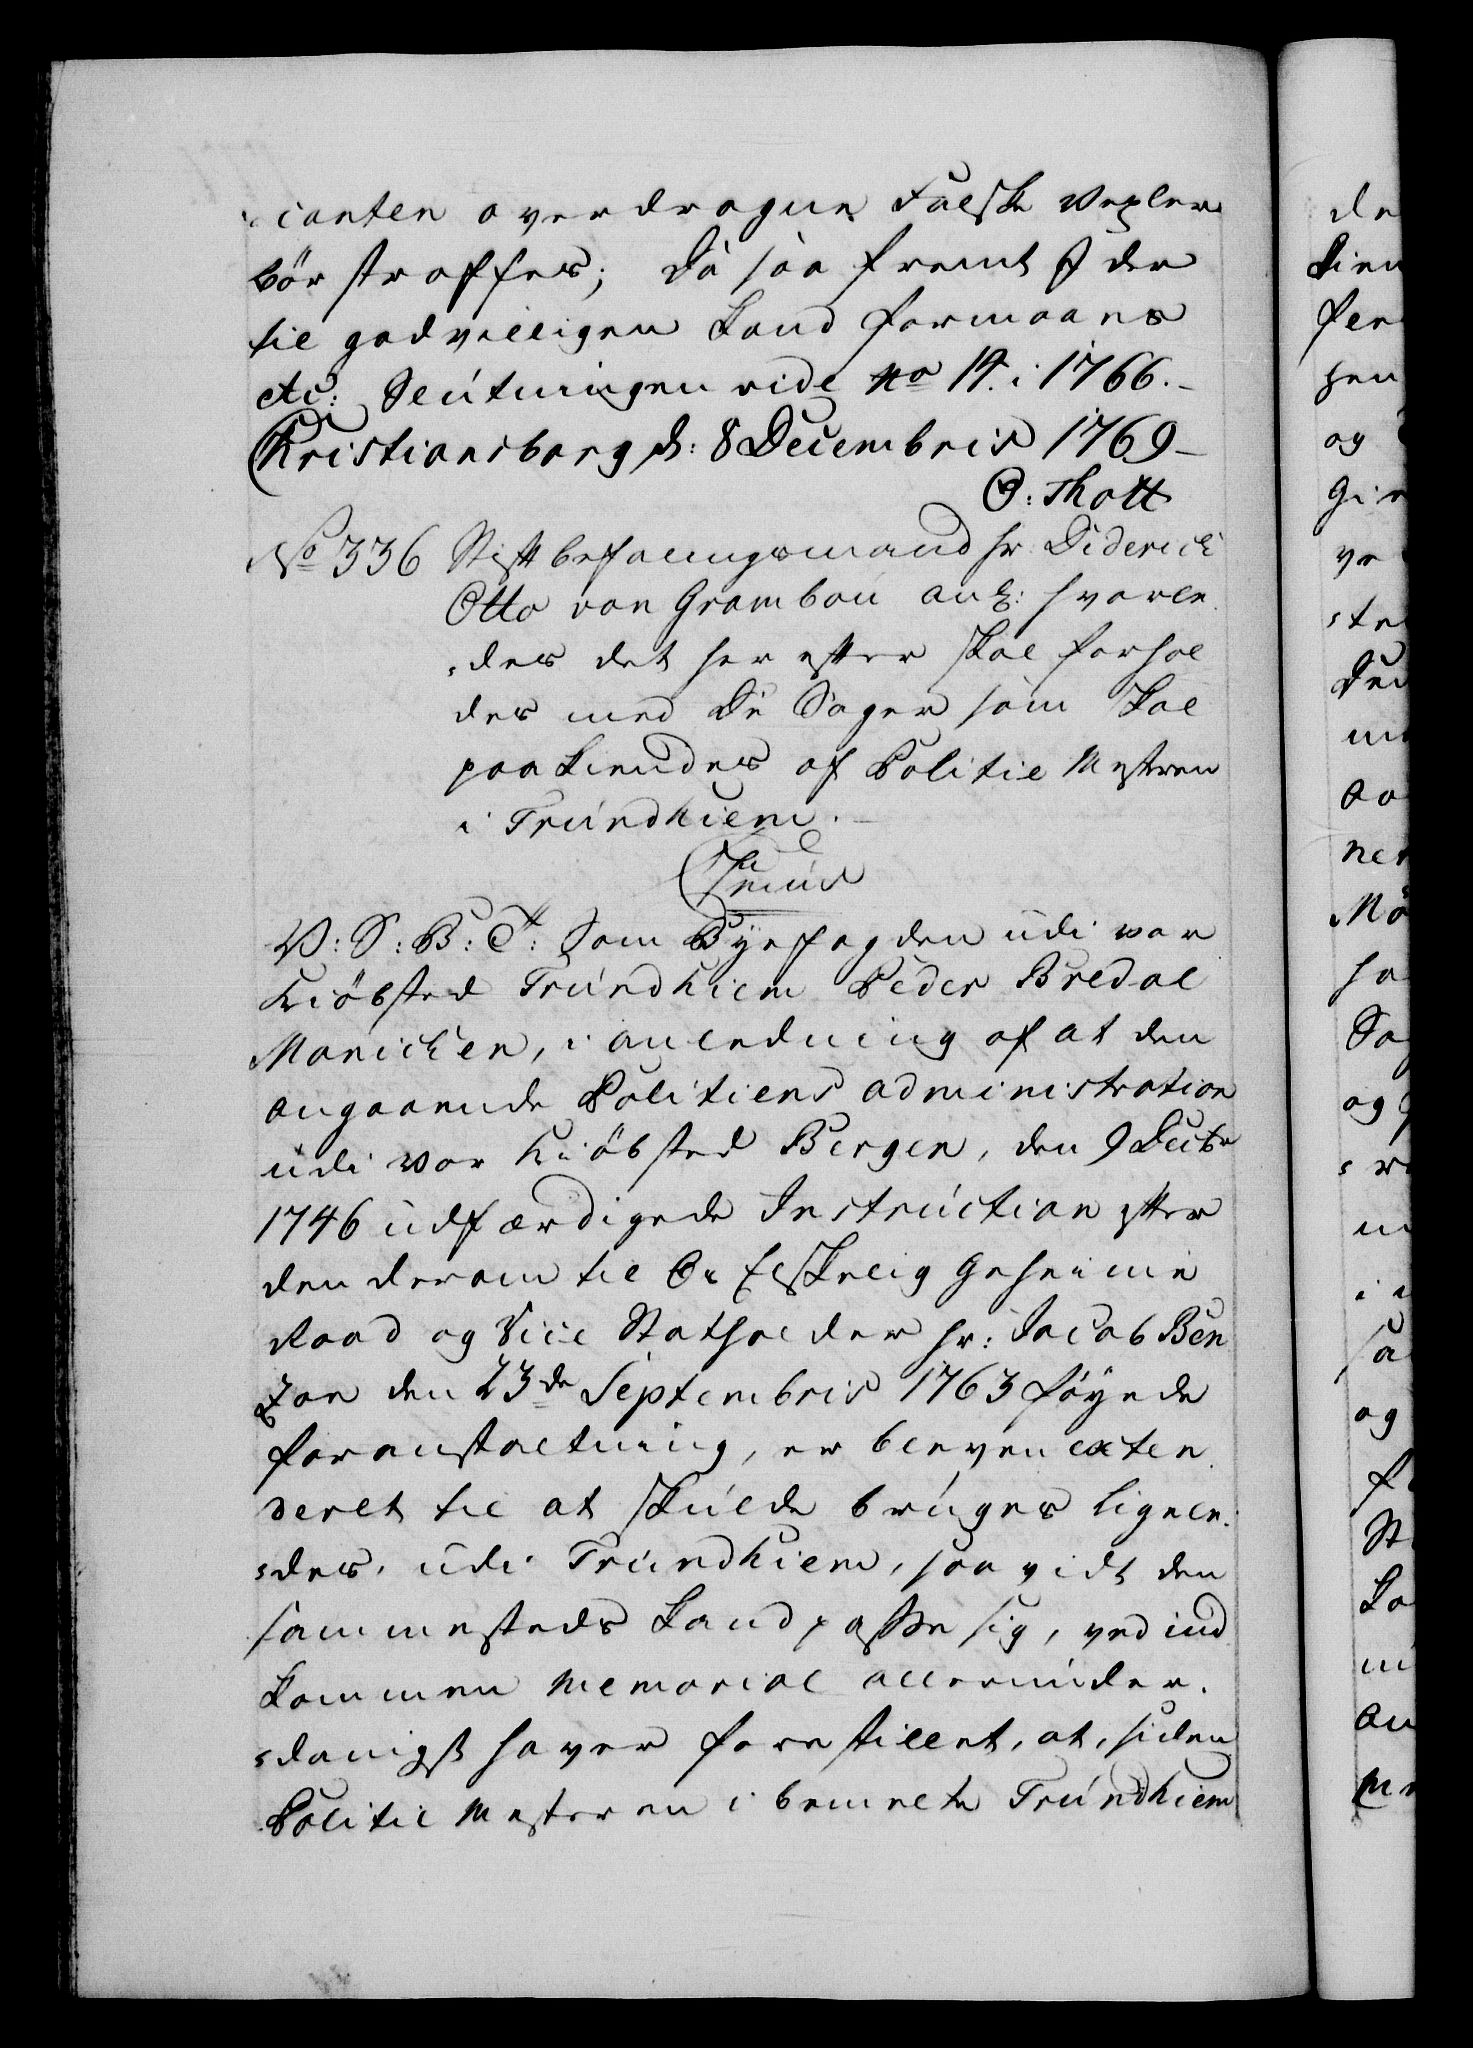 :ianten overdragne Falske Vexler
bör straffes; Da saa fremt I der
til godvilligen Kand formaaes
etc: Slutningen vide No 14. i 1766.-
Christiansborg d: 8 Decembris 1769-
O: Thott
No 336 Stiftbefalingsmand hr: Diderich
Otto von Grambou ank: hvorle
:des det her efter skal forhol
des med De Sager som skal
paakiendes af Politie Mesteren
i Trundhiem.-
V: S: B: T: Som Byefogden udi vor
Kiöbsted Trundhiem Peder Bredal
Manicken, i anledning af at den
angaaende Politiens administration
udi vor Kiöbsted Bergen, den 9 Decbr
1746 udfærdigede Instruction efter
den derom til Os Elskelig Geheime
Raad og Vice Statholder hr: Jacob Ben
zon den 23de Septembris 1763 föyede
foranstaltning, er bleven exten
deret til at skulde bruges ligele:
:des, udi Trundhiem, saavidt den
sammesteds Kand passe sig, ved ind
kommen Memorial allerunder.
:danigst haver forestillet, at, siden
Politie Mesteren i bemelte Trundhiem
de
kien
hen
og
ve
:te
ha
Sa
og
og
St